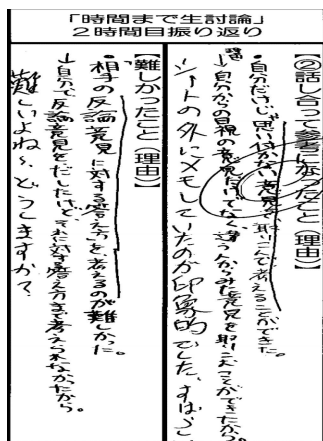 「時間まで生討論」
2時間目振り返り
【②話し合って参考になったこと(理由)】
・自分だけじゃ思い付かない意見を取りこんで考えることができた。
↓自分からの目視の意見だけでなく、違う人からみた意見を取りこむことができたから。
シートの外にメモしていたのが印象的でした。すばらし
【難しかったこと(理由)】
・相手の反論意見に対する答え方を考えるのが難しかった。
↓自分で反論意見をだしたけど、それに対する答え方まで考えられなかったから。
難しいよね〜、どうしますか?